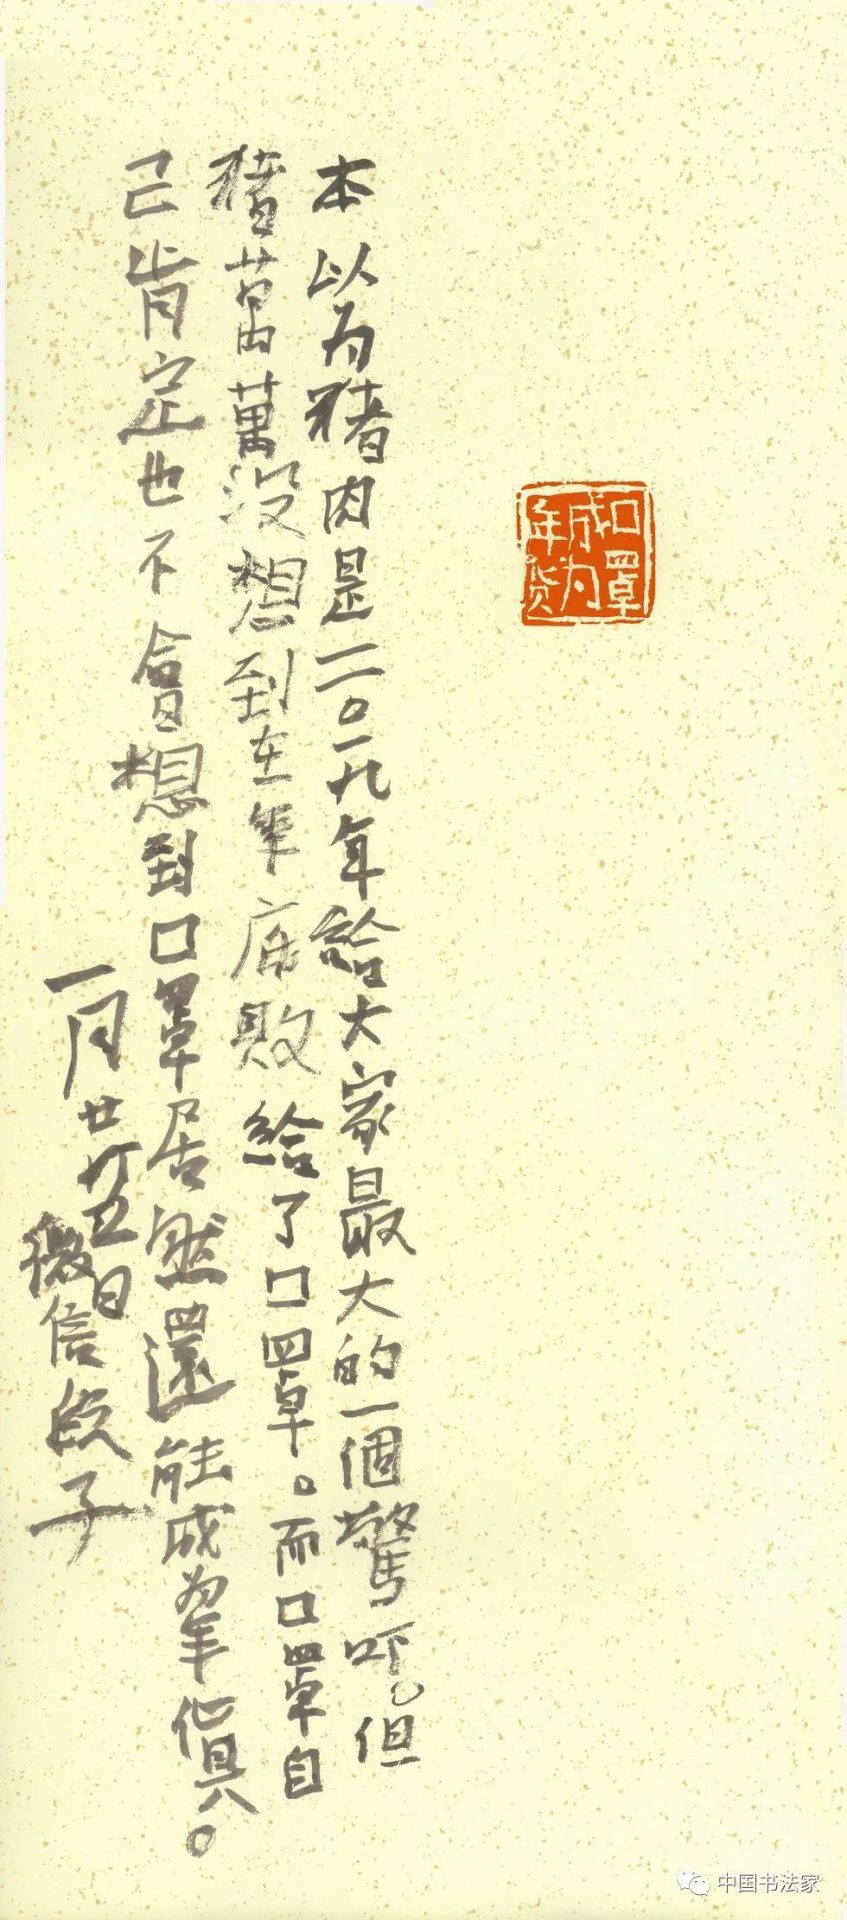 口罩
成为
年货
本以为猪肉是二〇一九年給大家最大的一個驚吓。但
猪萬萬没想到在年底敗給了口罩。而口罩自
己肯定也不會想到口罩居然還能成为年貨。
一月廿五日
微信段子
中国书法家